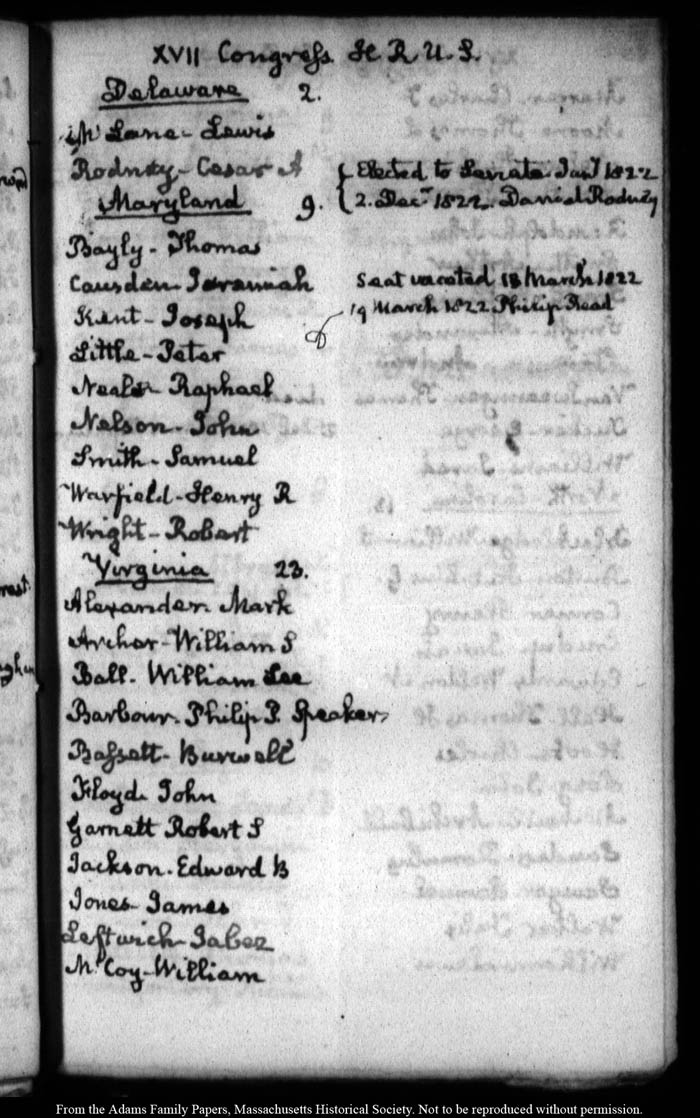 XVII Congress H R U. S.
Delaware 2.
Mc Lane - Lewis
Rodney - Cesar A { Elected to Senate Jany 1822
Maryland 9. { 2. Decr 1822. Daniel Rodney
Bayly - Thomas
Causden Jeremiah Seat vacated 18 March 1822
Kent - Joseph 19 March 1822 Philip Read
Little - Peter
Neale Raphael
Nelson - John
Smith - Samuel
Warfield - Henry R
Wright - Robert
Virginia 23.
Alexander Mark
Archer - William S
Ball - William Lee
Barbour. Philip P. Speaker
Bassett - Burwell
Floyd John
Garnett Robert S
Jackson - Edward B
Jones - James
Leftwich - Jabez
McCoy - William
From the Adams Family Papers, Massachusetts Historical Society. Not to be reproduced without permission.